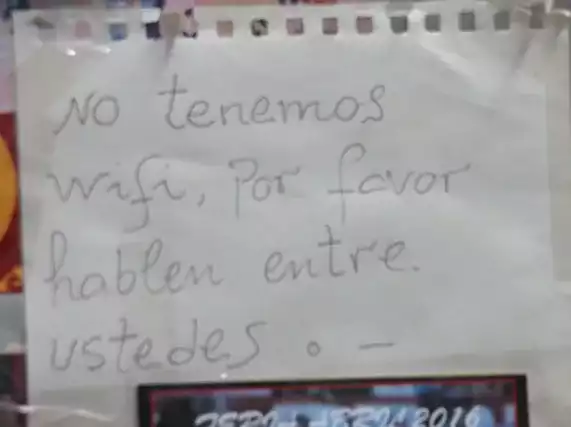 No tenemos
wifi, Por favor
hablen entre.
ustedes . –
2016